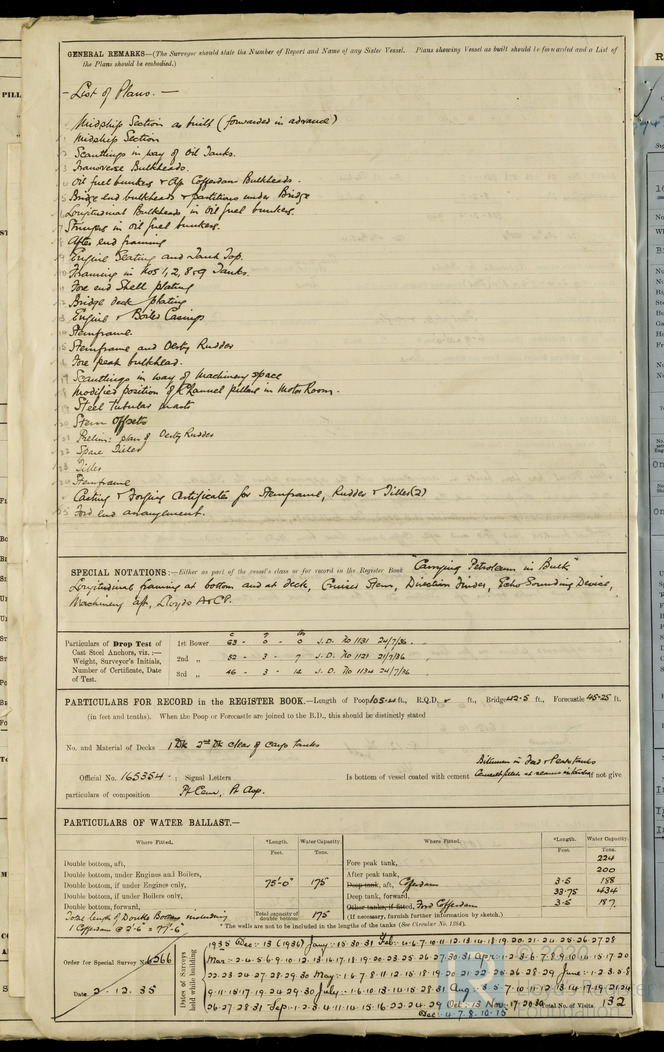 GENERAL REMARKS—(The Surveyor should state the Number of Report and Name of any Sister Vessel. Plans showing Vessel as built should be forwarded and a List of
the Plans should be embodied.)
- List of Plans. -
Midship Section as built (forwarded in advance)
1 Midship Section
2 Scantlings in way of Oil Tanks.
3 Transverse Bulkheads.
4 Oil fuel bunkers & Cofferdam Bulkheads.
5 Bridge end bulkheads & partitions under Bridge
6 Longitudinal Bulkheads in oil fuel bunkers.
7 Stringers in oil fuel bunkers.
8 After end framing
9 Engine Seating and Tank Top.
10 Framing in Nos 1, 2, 8 & 9 Tanks.
11 Fore end Shell plating
12 Bridge deck plating
13 Engine & Boiler Casings
14 Sternframe
15 Sternframe and Oertz Rudder
16 Fore peak bulkhead.
17 Scantlings in way of Machinery space
18 Modified position of Channel pillars in Motor Room.
19 Steel tubular masts
20 Stern Offsets
21 Prelim: plan of Oertz Rudder
22 Spare Tiller
23 Tiller
24 Sternframe
Casting & Forging Certificates for Sternframe, Rudder & Tiller (2)
25 Ford end arrangement.
SPECIAL NOTATIONS:—Either as part of the vessel's class or for record in the Register Book "Carrying Petroleum in Bulk"
Longitudinal framing at bottom and at deck, Cruiser Stern, Direction Finder, Echo Sounding Device,
Machinery aft, Lloyds A & CP.
Particulars of Drop Test of
Cast Steel Anchors, viz. :—
Weight, Surveyor's Initials,
Number of Certificate, Date
of Test.
1st Bower 63 - 0 - 0 J.D. No 1131 24/7/36
2nd „ 52 - 3 - 7 J.D. No 1121 21/7/36
3rd „ 46 - 3 - 14 J.D. No 1134 24/7/36
PARTICULARS FOR RECORD in the REGISTER BOOK.—Length of Poop 105. ft., R.Q.D. ft., Bridge 42.5 ft., Forecastle 45.25 ft.
(in feet and tenths). When the Poop or Forecastle are joined to the B.D., this should be distinctly stated
No. and Material of Decks 1 Dk 2nd Dk clear of cargo tanks
Official No. 165354 ; Signal Letters Is bottom of vessel coated with cement Bitumen in Ford & Peak tanks if not give
particulars of composition Pt Cem, Pt Asp.
PARTICULARS OF WATER BALLAST.—
Where Fitted. *Length. Feet. Water Capacity. Tons. Where Fitted. *Length. Feet. Water Capacity. Tons.
Double bottom, aft, Fore peak tank, 224
Double bottom, under Engines and Boilers, After peak tank, 200
Double bottom, if under Engines only, 75'-0" 175 Deep tank, aft, Cofferdam 3.5 188
Double bottom, if under Boilers only, Deep tank, forward, 33.75 434
Double bottom, forward, Other tanks, if fitted, Ford Cofferdam 3.5 187
Total length of Double Bottom including Total capacity of double bottom 175 (If necessary, furnish further information by sketch.)
1 Cofferdam @ 2'-6" = 77'-6" * The wells are not to be included in the lengths of the tanks (See Circular No. 1284).
Order for Special Survey No. 6366
Date 2 - 12 - 35
Dates of Surveys held while building
1935 Dec: 13 (1936) Jany: 15. 30. 31 Feb: 4. 6. 7. 10. 11. 12. 13. 14. 18. 19. 20. 21. 24. 25. 26. 27. 28
Mar: 2. 4. 5. 6. 9. 10. 12. 13. 16. 17. 18. 19. 20. 23. 25. 26. 27. 30. 31 Apr: 1. 2. 3. 6. 7. 8. 9. 10. 14. 15. 17. 20
22. 23. 24. 27. 28. 29. 30 May: 1. 6. 7. 8. 11. 12. 15. 18. 19. 20. 21. 22. 25. 26. 28. 29. June: 1. 2. 3. 5. 8
9. 11. 15. 17. 19. 24. 29. 30 July: 1. 6. 10. 13. 14. 15. 28. 31 Aug: 3. 5. 7. 10. 11. 12. 13. 14. 17. 19. 21. 24
26. 27. 28. 31 Sep: 1. 2. 3. 4. 11. 14. 15. 16. 22. 24. 29 Oct: 13 Nov: 17. 20. 30 Total No. of Visits 132
Dec: 4. 7. 8. 10. 15
© 2020